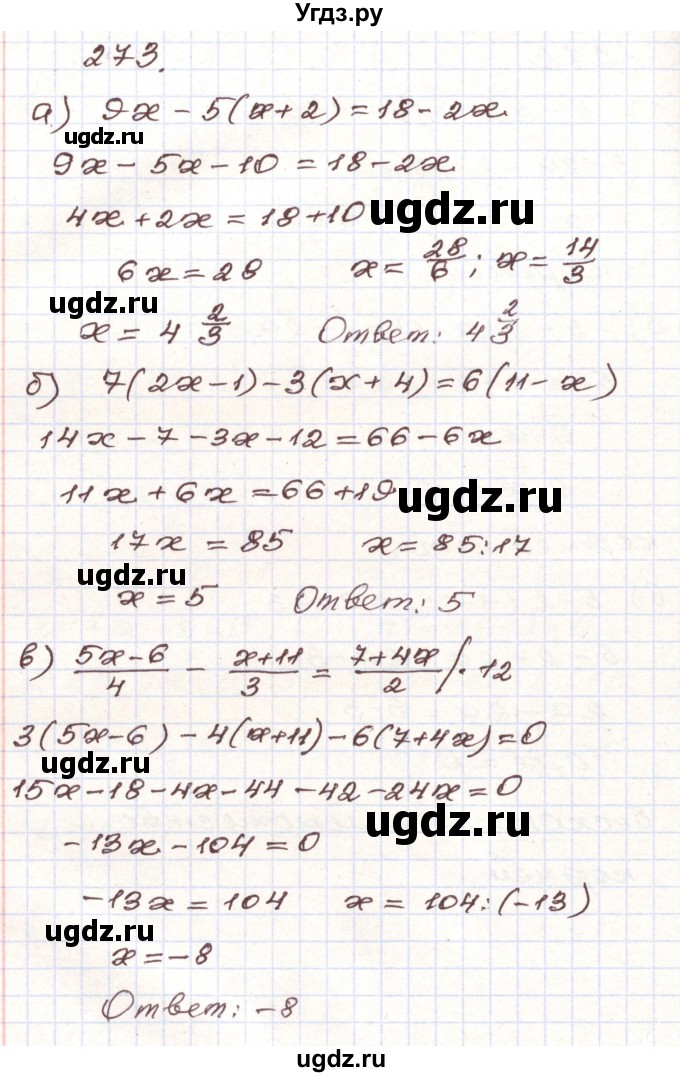 Угдз.ру
273.
а) 9x - 5(x+2) = 18 - 2x
ugdz.ru
9x - 5x - 10 = 18 - 2x
4x + 2x = 18 + 10
ugdz.ru
6x = 28 x = 28/6 ; x = 14/3
ugdz.ru
x = 4 2/3 Ответ: 4 2/3
б) 7(2x-1) - 3(x+4) = 6(11-x)
14x - 7 - 3x - 12 = 66 - 6x
11x + 6x = 66 + 19
ugdz.ru
17x = 85 x = 85:17
ugdz.ru
x = 5 Ответ: 5
в) (5x-6)/4 - (x+11)/3 = (7+4x)/2 /·12
3(5x-6) - 4(x+11) - 6(7+4x) = 0
ugdz.ru
15x - 18 - 4x - 44 - 42 - 24x = 0
ugdz.ru
-13x - 104 = 0
-13x = 104 x = 104:(-13)
ugdz.ru
x = -8
Ответ: -8
ugdz.ru